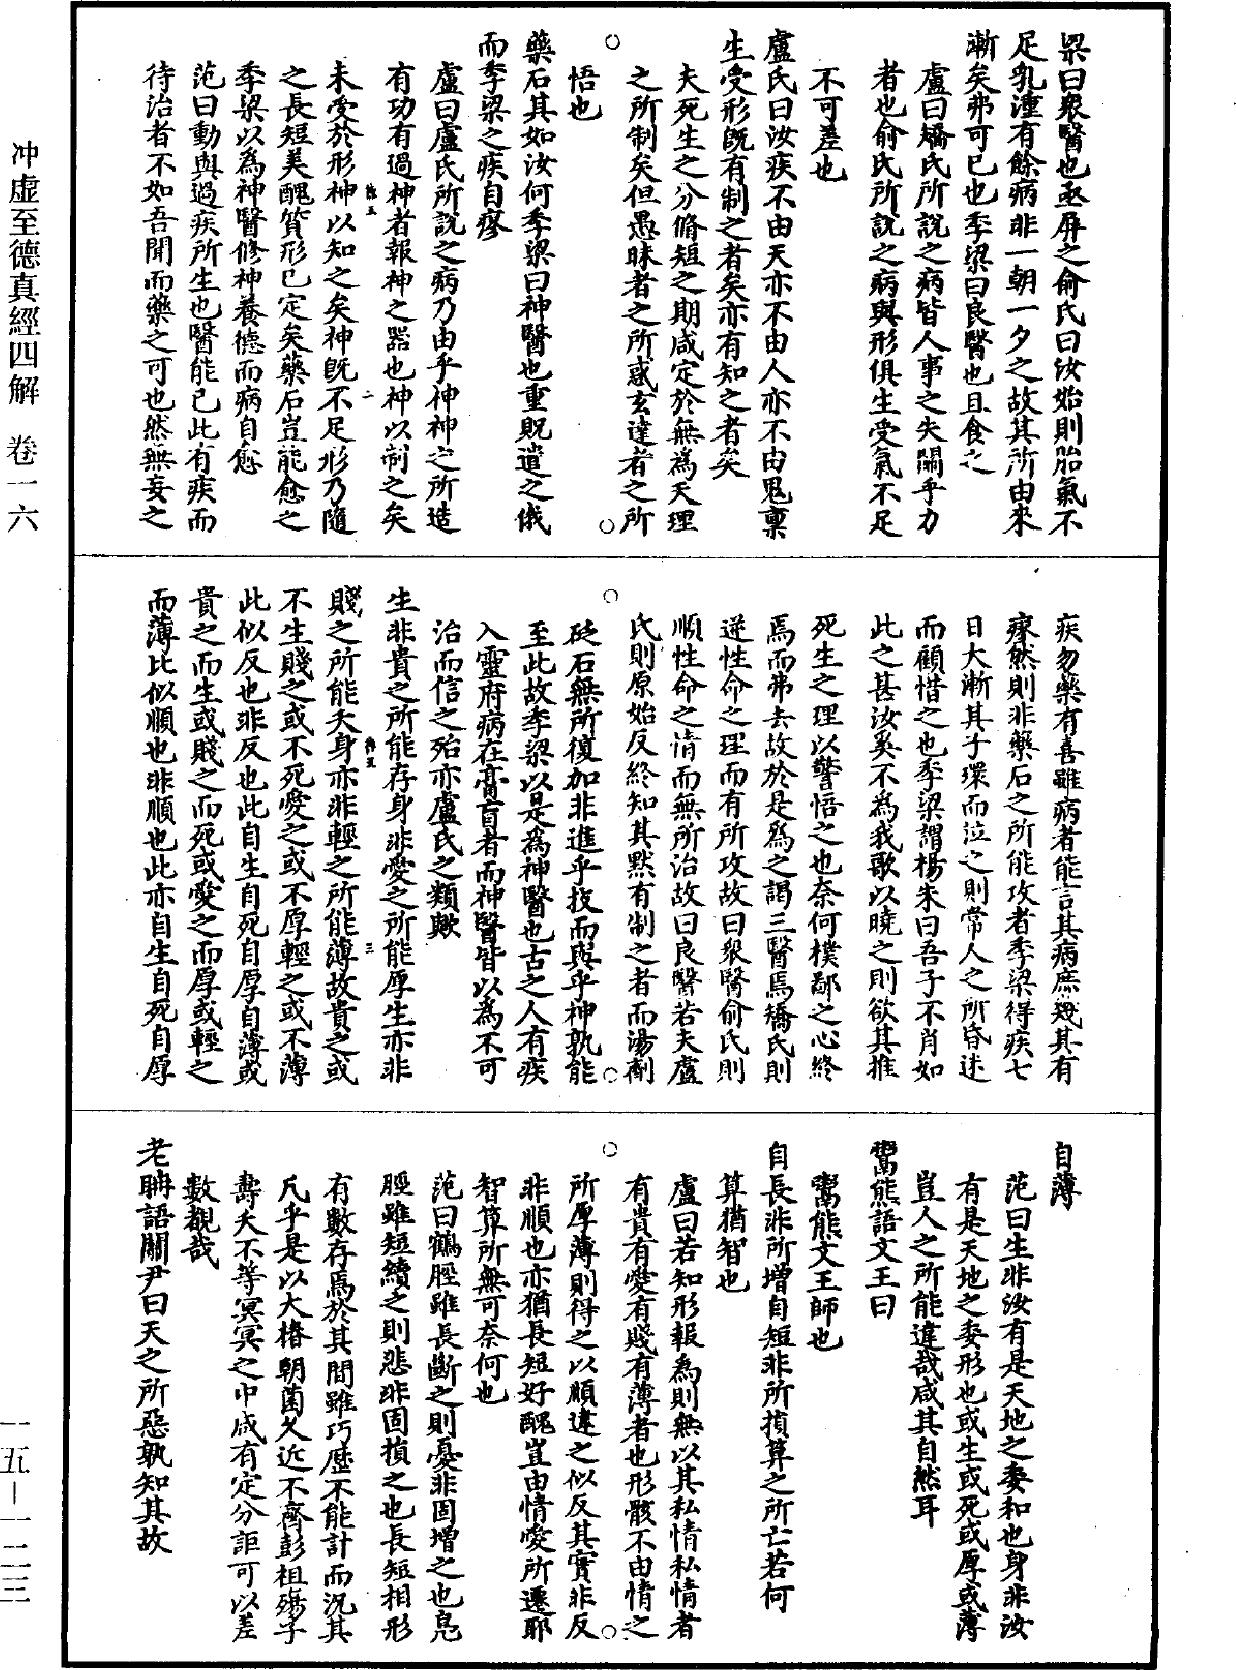 冲虛至德真經四解　卷一六
梁曰衆醫也亟屏之俞氏曰汝始則胎氣不
足乳湩有餘病非一朝一夕之故其所由來
漸矣弗可已也季梁曰良醫也且食之
盧曰矯氏所說之病皆人事之失關乎力
者也俞氏所說之病與形俱生受氣不足
不可差也
盧氏曰汝疾不由天亦不由人亦不由鬼稟
生受形旣有制之者矣亦有知之者矣
夫死生之分脩短之期咸定於無爲天理
之所制矣但愚昧者之所惑玄達者之所
悟也
藥石其如汝何季梁曰神醫也重貺遣之俄
而季梁之疾自瘳
盧曰盧氏所說之病乃由乎神神之所造
有功有過神者報神之器也神以制之矣
未受於形神以知之矣神旣不足形乃隨
之長短美醜質形已定矣藥石豈能愈之
季梁以爲神醫修神養德而病自愈
范曰動與過疾所生也醫能已此有疾而
待治者不如吾聞而藥之可也然無妄之
疾勿藥有喜雖病者能言其病庶幾其有
瘳然則非藥石之所能攻者季梁得疾七
日大漸其子環而泣之則常人之所昏迷
而顧惜之也季梁謂楊朱曰吾子不肖如
此之甚汝奚不為我歌以曉之則欲其推
死生之理以警悟之也奈何樸鄙之心終
焉而弗去故於是爲之謁三醫焉矯氏則
逆性命之理而有所攻故曰衆醫俞氏則
順性命之情而無所治故曰良醫若夫盧
氏則原始反終知其默有制之者而湯劑
砭石無所復加非進乎技而與乎神孰能
至此故季梁以是爲神醫也古之人有疾
入靈府病在膏肓者而神醫皆以為不可
治而信之殆亦盧氏之類歟
生非貴之所能存身非愛之所能厚生亦非
賤之所能夭身亦非輕之所能薄故貴之或
不生賤之或不死愛之或不厚輕之或不薄
此似反也非反也此自生自死自厚自薄或
貴之而生或賤之而死或愛之而厚或輕之
而薄比似順也非順也此亦自生自死自厚
自薄
范曰生非汝有是天地之委和也身非汝
有是天地之委形也或生或死或厚或薄
豈人之所能違哉咸其自然耳
鬻熊語文王曰
鬻熊文王師也
自長非所增自短非所損算之所亡若何
算猶智也
盧曰若知形報為則無以其私情私情者
有貴有愛有賤有薄者也形骸不由情之
所厚薄則得之以順違之似反其實非反
非順也亦猶長短好醜豈由情愛所遷耶
智算所無可奈何也
范曰鶴脛雖長斷之則憂非固增之也鳧
脛雖短續之則悲非固損之也長短相形
有數存焉於其間雖巧歷不能計而況其
凡乎是以大椿朝菌久近不齊彭祖殤子
壽夭不等冥冥之中咸有定分詎可以差
數觀哉
老聃語關尹曰天之所惡孰知其故
一五－一二三